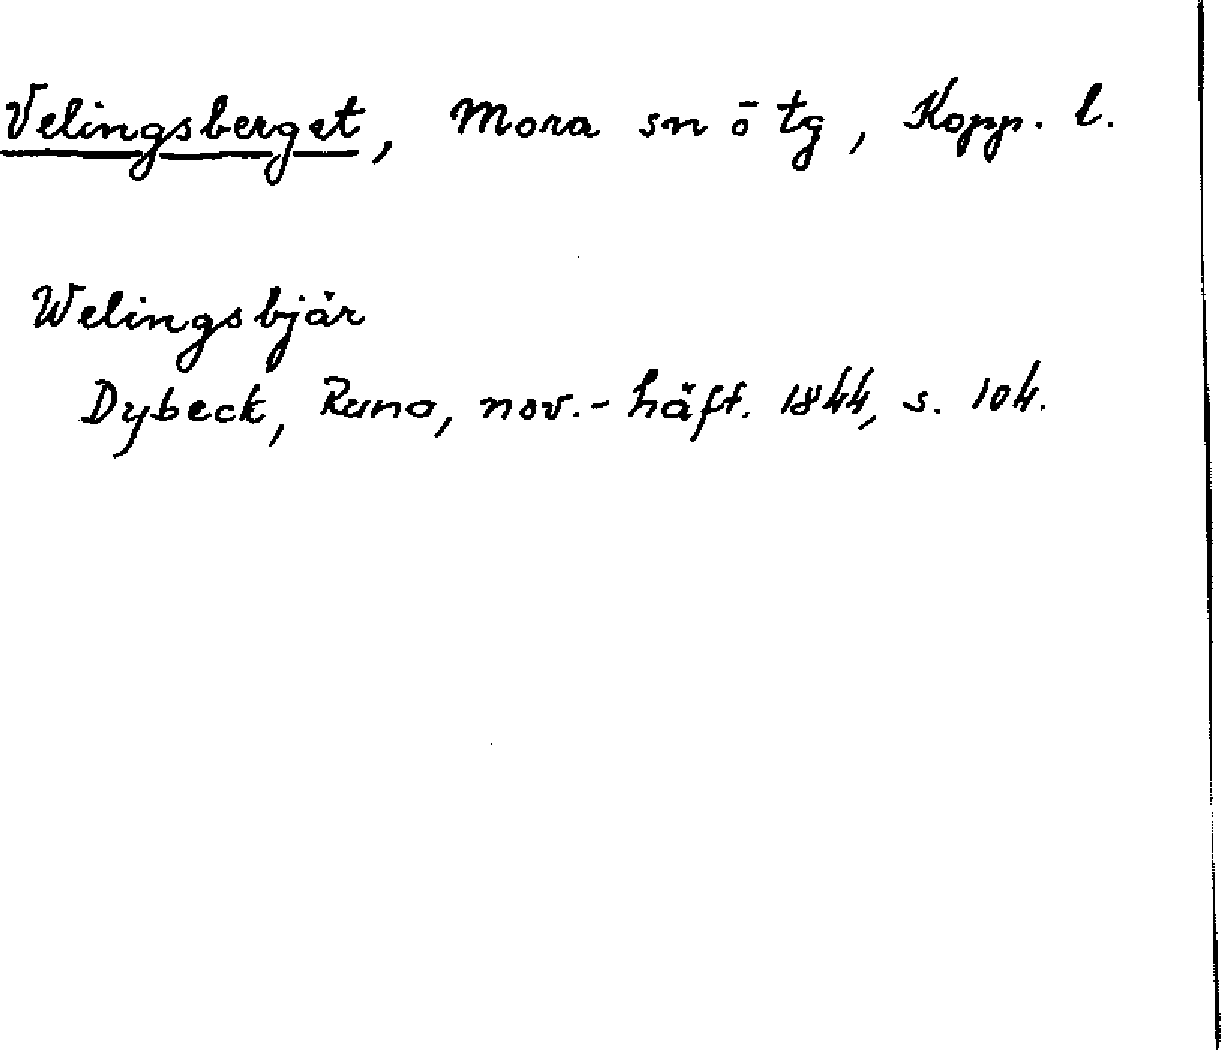 Velingsberget, Mora sn ō tg, Kopp. l.
Welingsbjär
Dybeck, Runa, nov.-häft. 1844, s. 104.